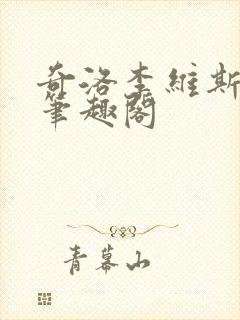 奇洛李維斯
筆趣閣
青幕山